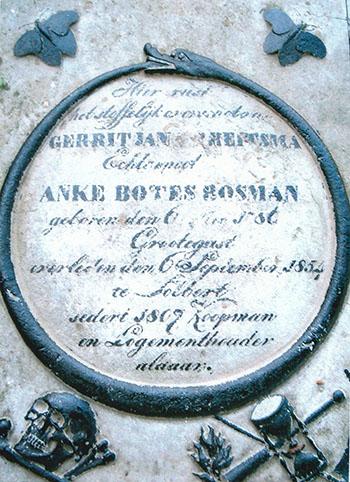 Hier rust
het stoffelijk overschot van
GERRIT JAN HEITSMA
Echtgenoot
ANKE BOTES BOSMAN
geboren den 6 1786
Grootegast
overleden den 6 September 1854
te Tolbert
sedert 1807 Koopman
en Logementhouder
aldaar.